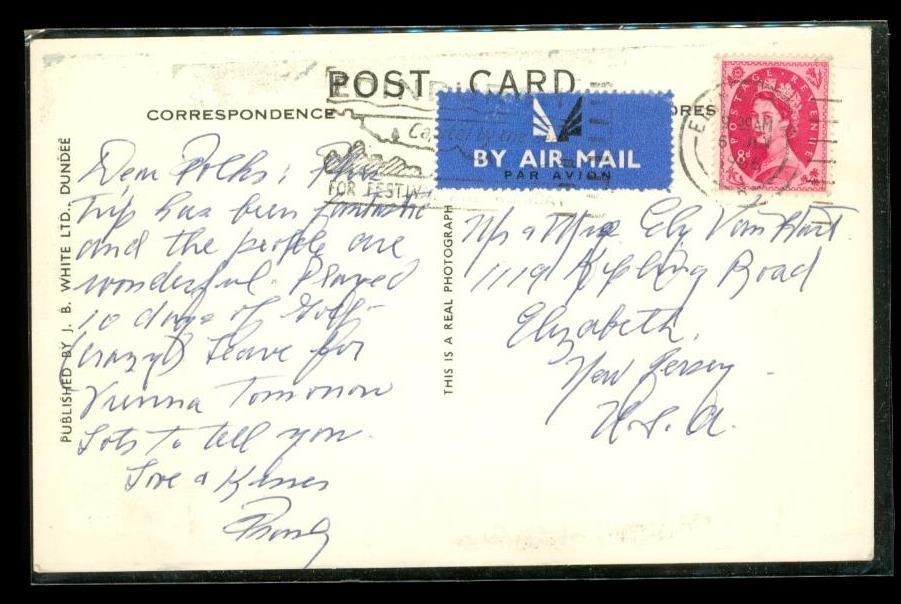 POST CARD
CORRESPONDENCE
BY AIR MAIL
PAR AVION
FOR FESTIV
POSTAGE REVENUE
8
PUBLISHED BY J. B. WHITE LTD., DUNDEE
THIS IS A REAL PHOTOGRAPH
Dear Folks: This
trip has been fantastic
and the people are
wonderful. Played
10 days of Golf-
(crazy) Leave for
Vienna Tomorrow
Lots to tell you.
Love & Kisses
Mr & Mrs Ely Van
1119 Kipling Road
Elizabeth,
New Jersey
U.S.A.